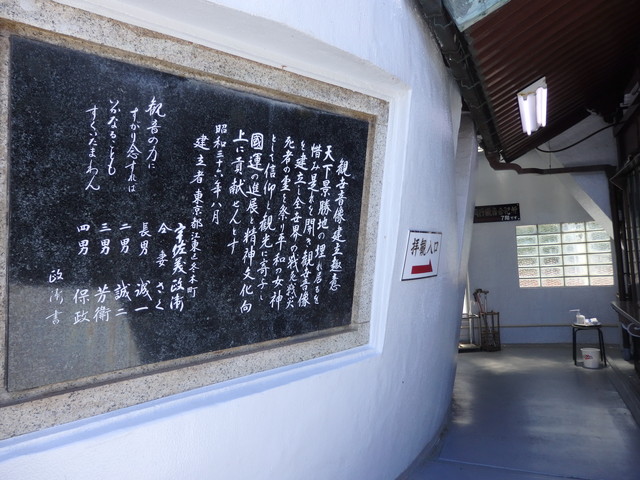 観音像建立趣意
天下景勝地の埋れ居るを
惜み是れを開き観音像
を建立し全世界の戦歿戦災
死者の霊を祭り平和の女神
として信仰と観光に寄与し
國運の進展と精神文化向
上に貢献せんとす
昭和三十六年八月
建主者 東京都江東区冬木町
宇佐美政衛
仝 妻 さく
長男 誠一
二男 誠二
三男 芳衛
四男 保政
観音の力に
すがり念ずれば
いかなることも
すくいたまわん
政衛書
拝観入口